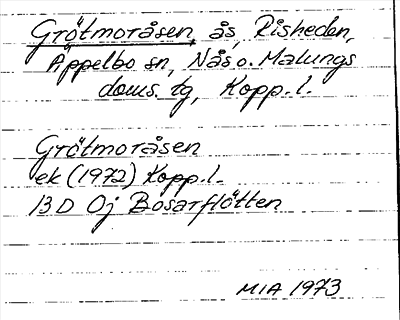 Grötmoråsen, ås, Risheden,
Äppelbo sn, Nås o. Malungs
doms. tg, Kopp. l.
Grötmoråsen
ek (1972) Kopp. l.
13 D Öj Bosarflötten
MIA 1973